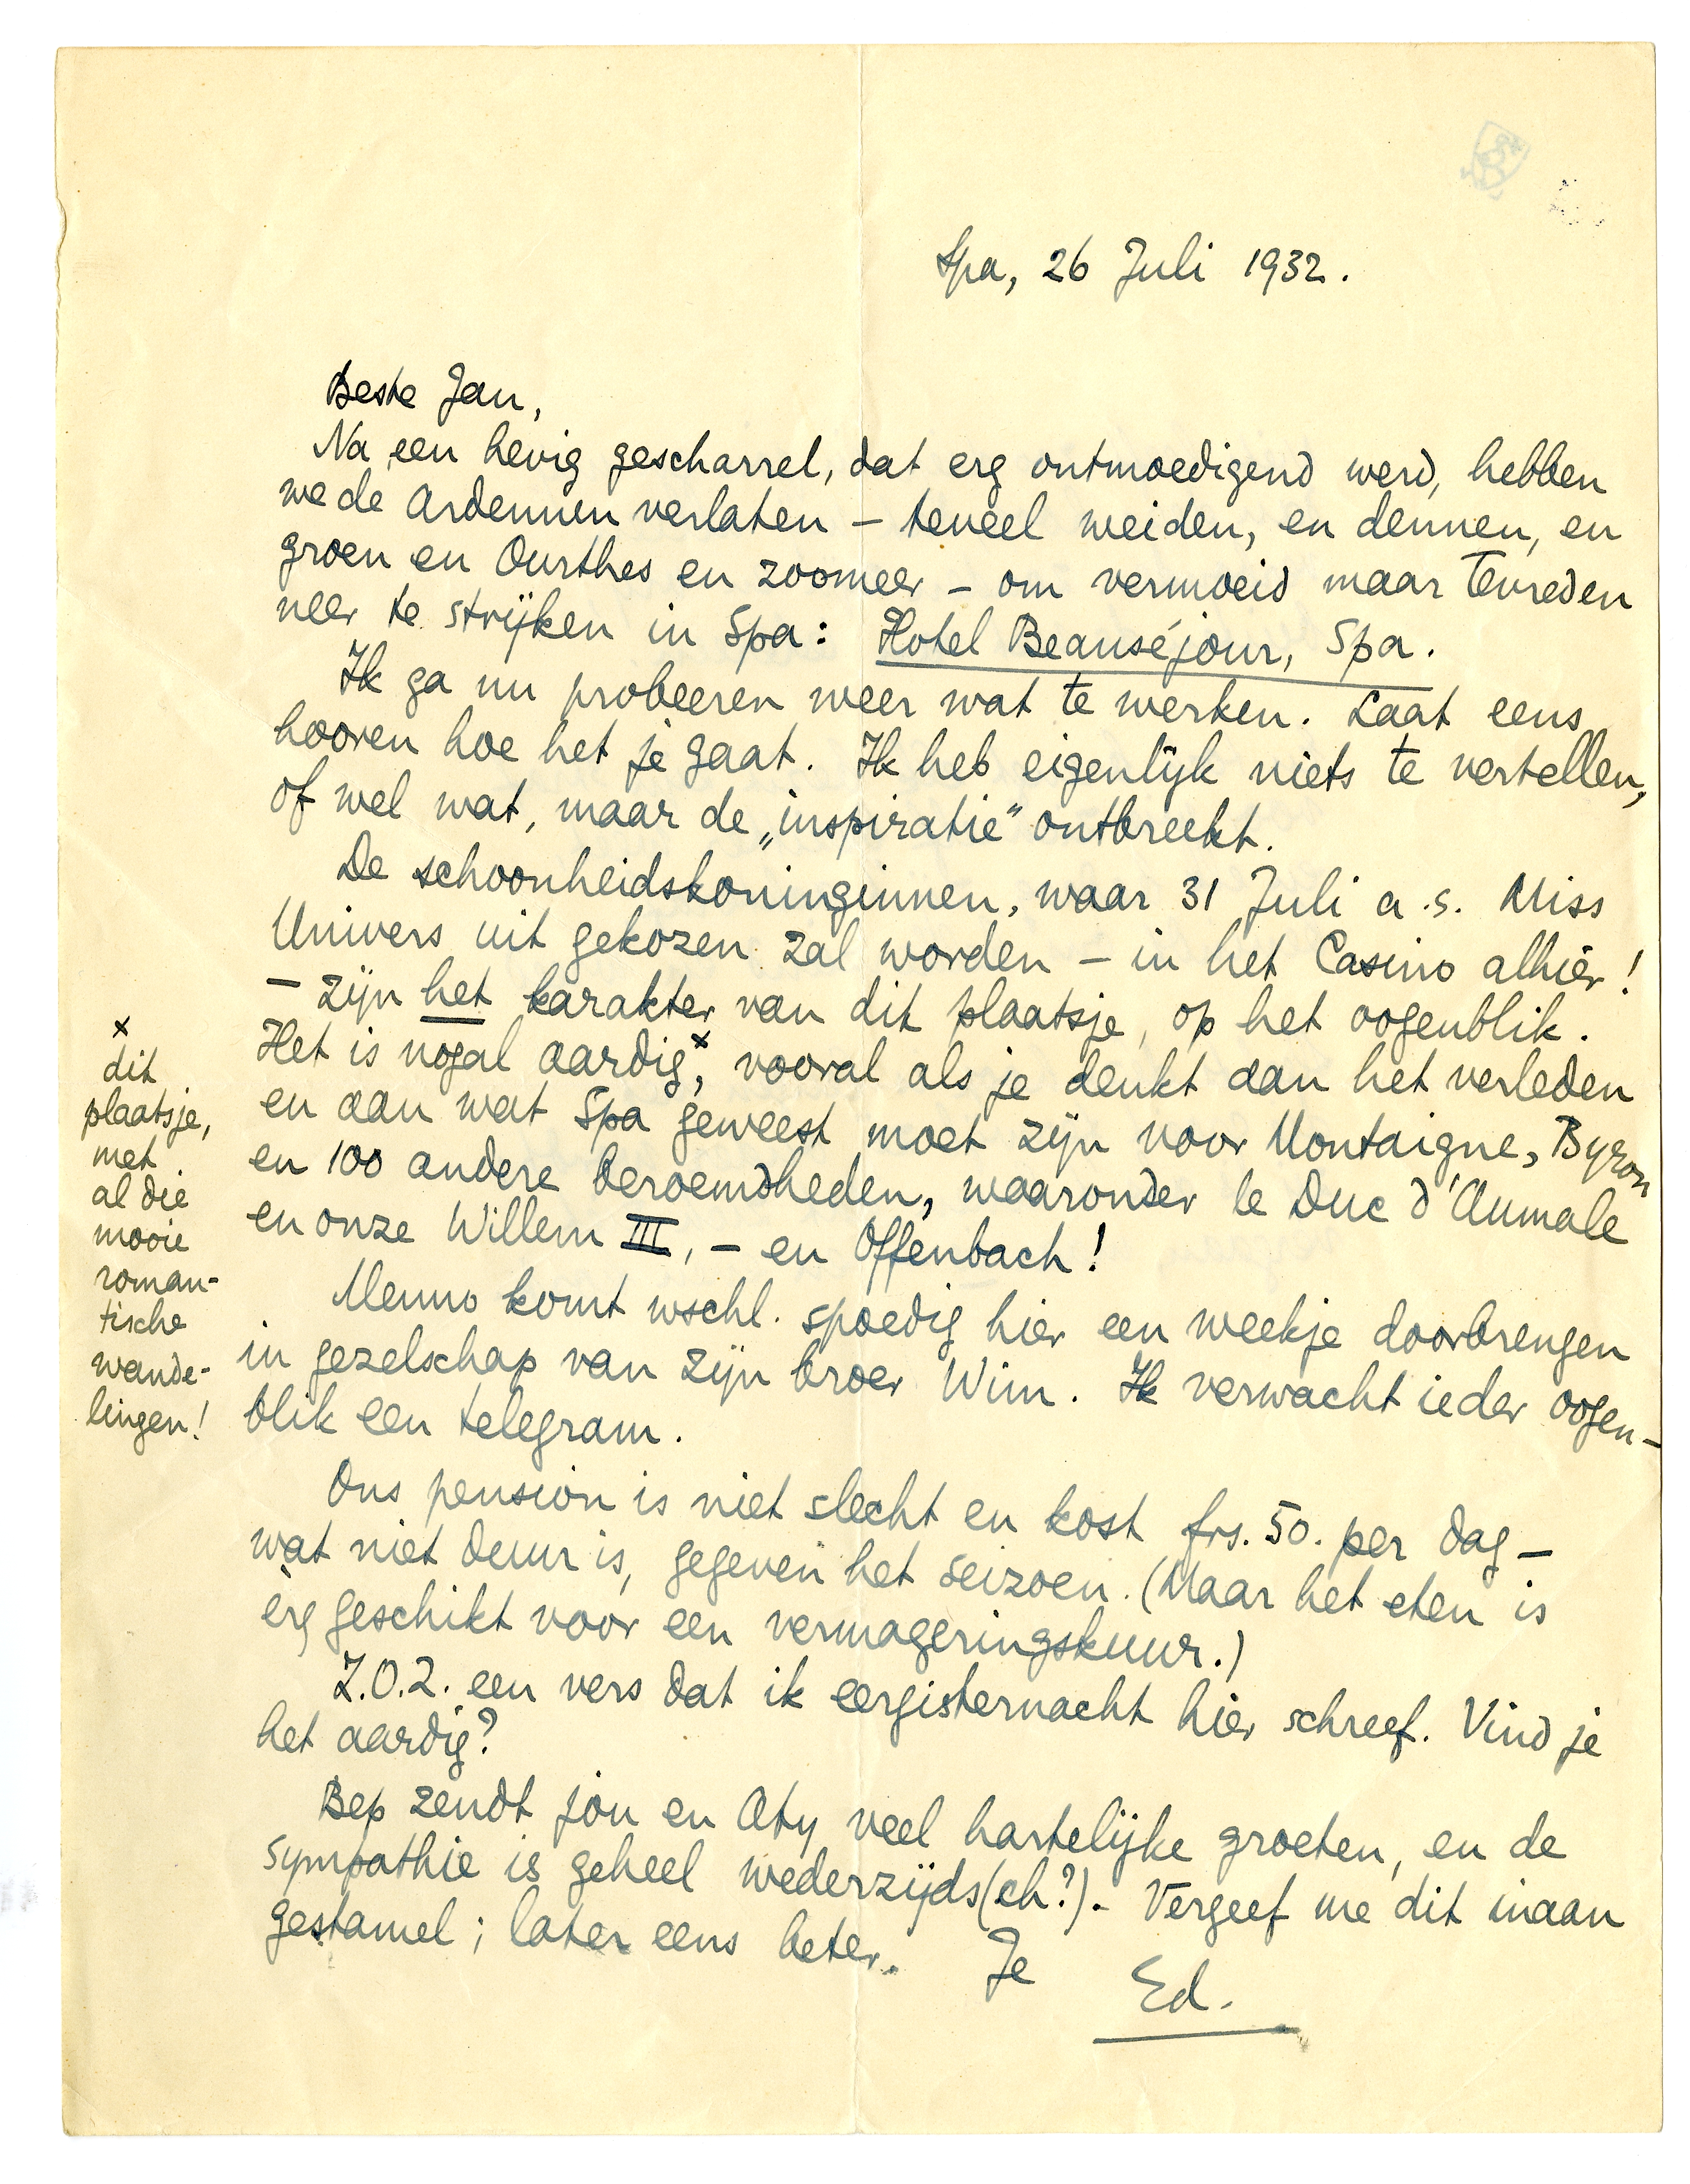 Spa, 26 Juli 1932.
Beste Jan,
Na een hevig gescharrel, dat erg ontmoedigend werd, hebben
we de Ardennen verlaten – teveel weiden, en dennen, en
groen en Ourthes en zoomeer – om vermoeid maar tevreden
neer te strijken in Spa: Hotel Beauséjour, Spa.
Ik ga nu probeeren weer wat te werken. Laat eens
hooren hoe het je gaat. Ik heb eigenlijk niets te vertellen,
of wel wat, maar de „inspiratie" ontbreekt.
De schoonheidskoninginnen, waar 31 Juli a.s. Miss
Univers uit gekozen zal worden – in het Casino alhier!
– zijn het karakter van dit plaatsje, op het oogenblik.
Het is nogal aardig×, vooral als je denkt aan het verleden
en aan wat Spa geweest moet zijn voor Montaigne, Byron
en 100 andere beroemdheden, waaronder le Duc d'Aumale
en onze Willem III, – en Offenbach!
Menno komt wschl. spoedig hier een weekje doorbrengen
in gezelschap van zijn broer Wim. Ik verwacht ieder oogen-
blik een telegram.
Ons pension is niet slecht en kost frs. 50. per dag –
wat niet duur is, gegeven het seizoen. (Maar het eten is
erg geschikt voor een vermageringskuur.)
Z.O.Z. een vers dat ik eergisternacht hier schreef. Vind je
het aardig?
Bep zendt jou en Aty veel hartelijke groeten, en de
sympathie is geheel wederzijds(ch?). – Vergeef me dit inaan
gestamel; later eens beter. Je
Ed.
×
dit
plaatsje,
met
al die
mooie
roman-
tische
wande-
lingen!